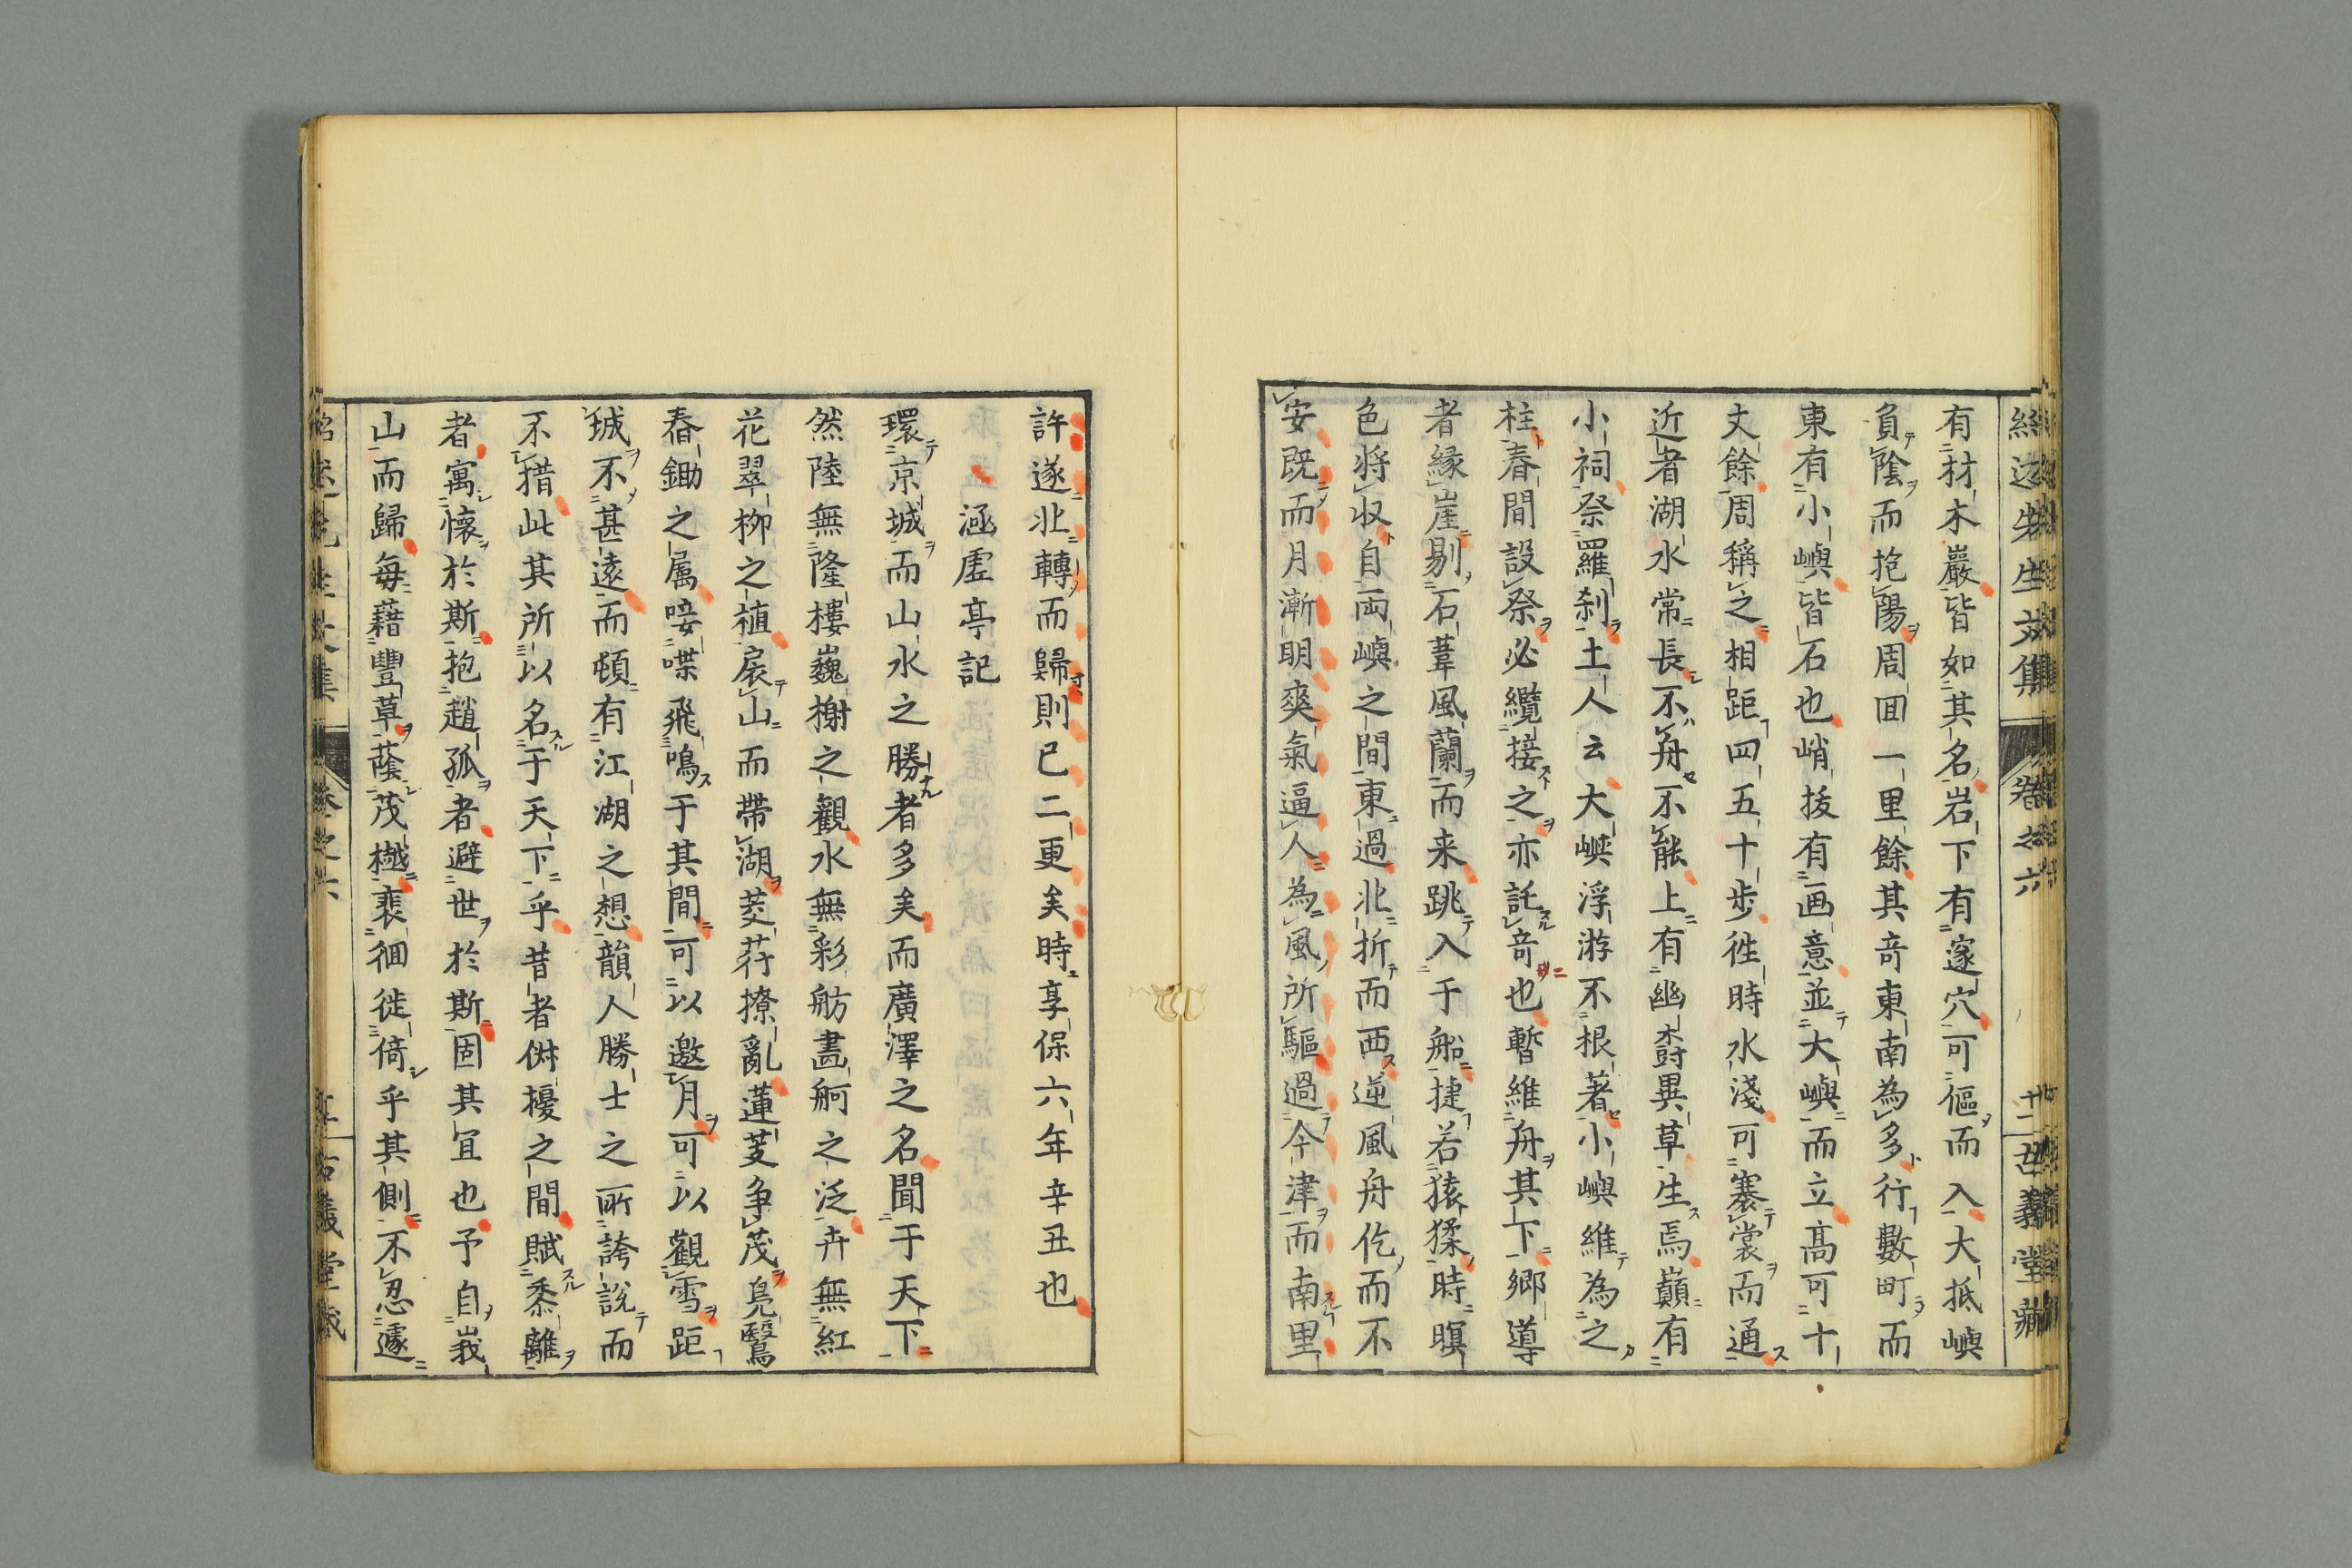 紹述先生文集 卷之六 古義堂藏
有材木巖皆如其名岩下有邃穴可傴而入大抵嶼
負陰而抱陽周囬一里餘其竒東南為多行數町而
東有小嶼皆石也峭拔有画意並大嶼而立髙可十
丈餘周稱之相距四五十歩徃時水淺可褰裳而通
近者湖水常長不舟不能上有幽樹異草生焉巔有
小祠祭羅刹土人云大嶼浮游不根著小嶼維為之
柱春間設祭必纜接之亦託竒也暫維舟其下郷導
者緣崖剔石葦風蘭而来跳入于船捷若猿猱時暝
色将収自両嶼之間東過北折而西逆風舟仡而不
安既而月漸明爽氣逼人為風所驅過今津而南里
許遂北轉而歸則已二更矣時享保六年辛丑也
涵虛亭記
環京城而山水之勝者多矣而廣澤之名聞于天下
然陸無隆樓巍榭之觀水無彩舫畵舸之泛卉無紅
花翠柳之植扆山而帶湖菱荇撩亂蓮芰争茂鳧鷖
舂鋤之属唼喋飛鳴于其間可以邀月可以觀雪距
城不甚遠而頓有江湖之想韻人勝士之所誇說而
不措此其所以名于天下乎昔者俶擾之間賦黍離
者寓懷於斯抱趙孤者避世於斯固其冝也予自峩
山而歸每藉豐草蔭茂樾裵徊徙倚乎其側不忍遽